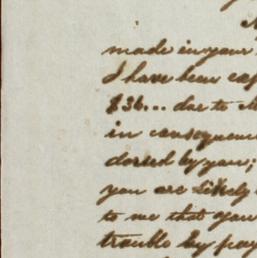 made in your
I have been
$36... due to
in consequence
dorsed by you;
you are likely
to me that you
trouble by pay